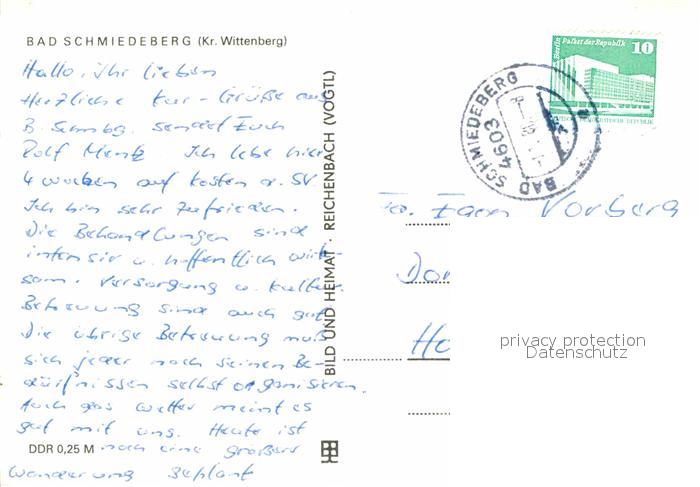 BAD SCHMIEDEBERG (Kr. Wittenberg)
Hallo, ihr lieben
Herzliche Kur-Grüße aus
B. Schmbg. sendet Euch
Rolf Ich lebe hier
4 Wochen auf Kosten d. SV.
Ich bin sehr zufrieden.
Die Behandlungen sind
intensiv u. hoffentlich wirk-
sam. Versorgung u. kultur.
Betreuung sind auch gut
Die übrige Betreuung muß
sich jeder nach seinen Be-
dürfnissen selbst organisieren.
Auch das Wetter meint es
gut mit uns. Heute ist
DDR 0,25 M noch eine größere
Wanderung geplant
BILD UND HEIMAT · REICHENBACH (VOGTL)
Berlin Palast der Republik 10
DEUTSCHE DEMOKRATISCHE REPUBLIK
BAD SCHMIEDEBERG
4603
Fam. Vorberg
Do
Ho
privacy protection
Datenschutz